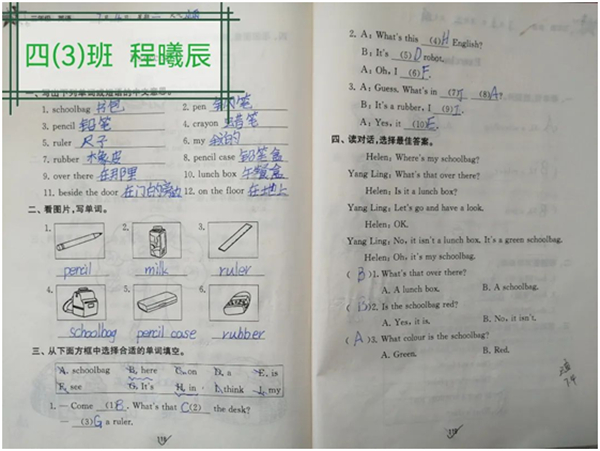 四(3)班 程曦辰
一、写出下列单词或短语的中文意思。
1. schoolbag 书包 2. pen 钢笔
3. pencil 铅笔 4. crayon 蜡笔
5. ruler 尺子 6. my 我的
7. rubber 橡皮 8. pencil case 铅笔盒
9. over there 在那里 10. lunch box 午餐盒
11. beside the door 在门的旁边 12. on the floor 在地上
二、看图片,写单词。
1. 2. 3.
pencil milk ruler
4. 5. 6.
schoolbag pencil case rubber
三、从下面方框中选择合适的单词填空。
A. schoolbag B. here C. on D. a E. is
F. see G. It's H. in I. think J. my
1. — Come (1)B. What's that C(2) the desk?
— (3)G a ruler.
118
2. A: What's this (4)H English?
B: It's (5)D robot.
A: Oh, I (6)F.
3. A: Guess. What's in (7)J (8)A?
B: It's a rubber, I (9)I.
A: Yes, it (10)E.
四、读对话,选择最佳答案。
Helen: Where's my schoolbag?
Yang Ling: What's that over there?
Helen: Is it a lunch box?
Yang Ling: Let's go and have a look.
Helen: OK.
Yang Ling: No, it isn't a lunch box. It's a green schoolbag.
Helen: Oh, it's my schoolbag.
( B )1. What's that over there?
A. A lunch box. B. A schoolbag.
( B )2. Is the schoolbag red?
A. Yes, it is. B. No, it isn't.
( A )3. What colour is the schoolbag?
A. Green. B. Red.
119